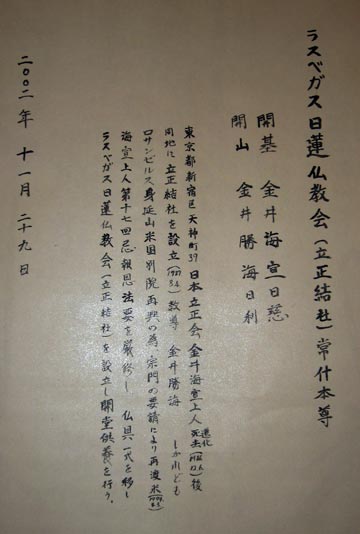 ラスベガス日蓮仏教会(立正結社)常什本尊
開基 金井海宣日慈
開山 金井勝海日利
東京都新宿区天神町39 日本立正会 金井海宣上人 後
同地に立正結社を設立 教導 金井勝海 しかれども
ロサンゼルス身延山米国別院再興の為宗門の要請により再渡米
海宣上人第十七回忌報恩法要を厳修し 仏具一式を移し
ラスベガス日蓮仏教会(立正結社)を設立し開堂供養を行う。
二〇〇二年 十一月 二十九日